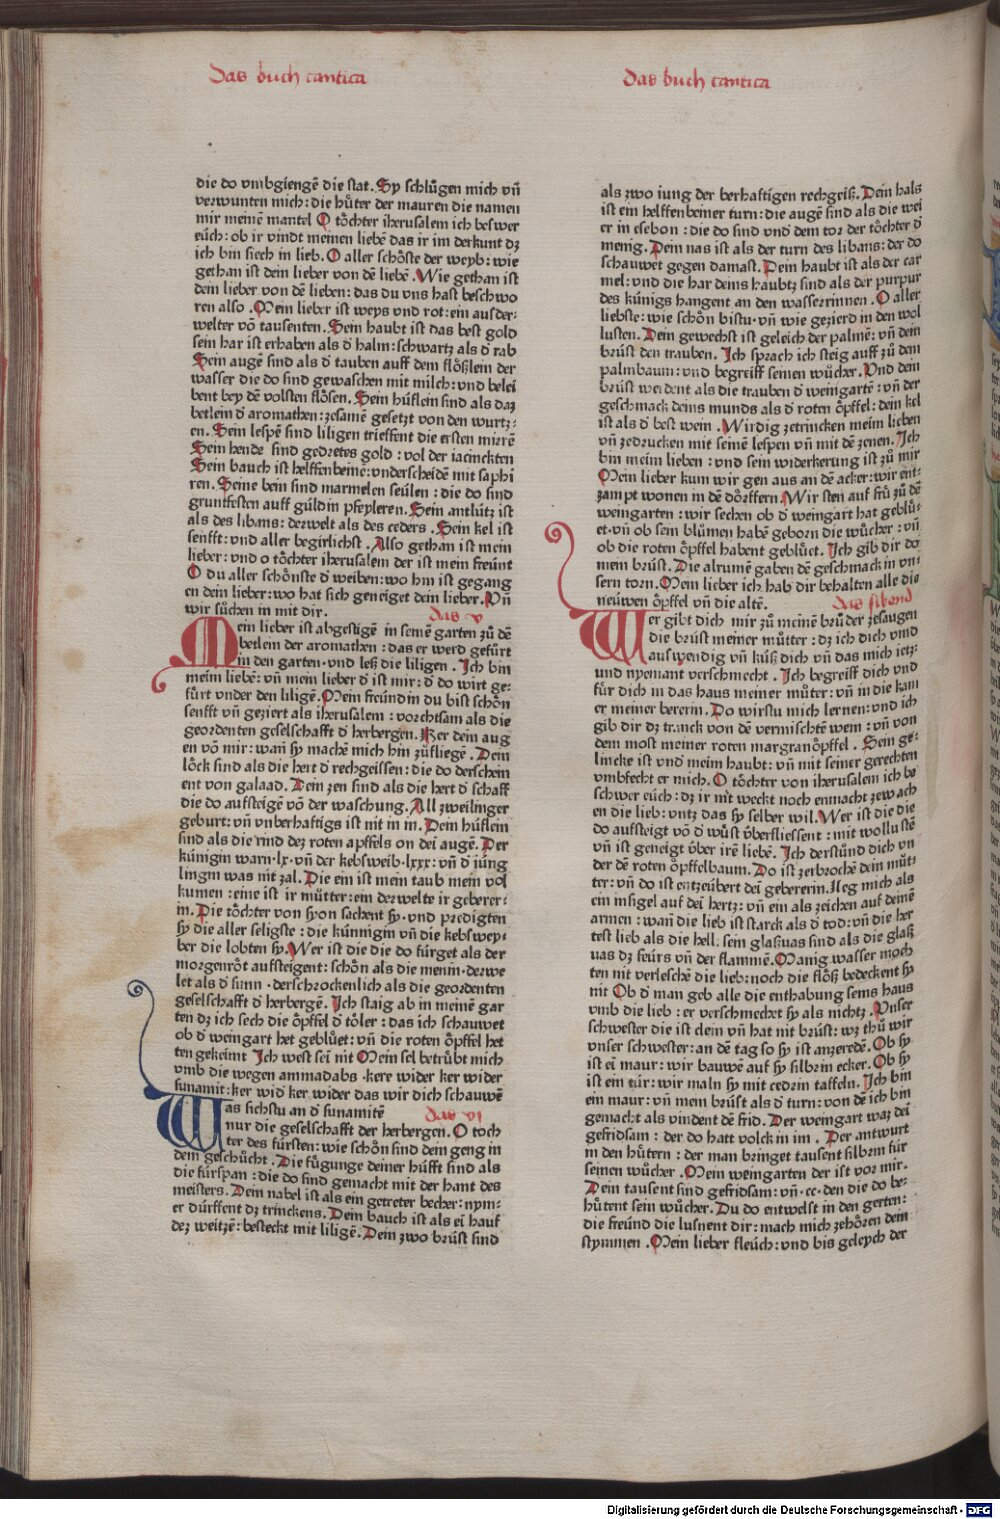 das buch cantica
die do vmbgiengē die stat. Sy schlůgen mich vñ
verwunten mich: die hůter der mauren die namen
mir meinē mantel O tŏchter iherusalem ich beswer
eüch: ob ir vindt meinen liebē das ir im derkunt dz
ich bin siech in lieb. O aller schŏste der weyb: wie
gethan ist dein lieber von dē liebē. Wie gethan ist
dein lieber von dē lieben: das du vns hast beschwo
ren also. Mein lieber ist weys vnd rot: ein ausder-
welter vō tausenten. Sein haubt ist das best gold
sein har ist erhaben als đ halm: schwartz als đ rab
Sein augē sind als đ tauben auff dem flŏßlein der
wasser die do sind gewaschen mit milch: vnd belei
bent bey dē volsten flŏsen. Sein hüflein sind als daz
betlein đ aromathen: zesamē gesetzt von den wurtz-
en. Sein lespē sind liligen trieffent die ersten mirrē
Sein hende sind gedretes gold: vol der iacinckten
Sein bauch ist helffenbeinē: vnderscheidē mit saphi
ren. Seine bein sind marmelen seülen: die do sind
gruntfesten auff güldin pfeyleren. Sein antlütz ist
als des libans: derwelt als des ceders. Sein kel ist
senfft: vnd aller begirlichst. Also gethan ist mein
lieber: vnd o tŏchter iherusalem der ist mein freünt
O du aller schŏnste đ weiben: wo hin ist gegang
en dein lieber: wo hat sich geneiget dein lieber. Vñ
wir sůchen in mit dir. das v
Mein lieber ist abgestigē in seinē garten zů dē
betlein der aromathen: das er werd gefürt
in den garten. vnd leß die liligen. Ich bin
meim liebē: vñ mein lieber đ ist mir: đ do wirt ge-
fürt vnder den liligē. Mein freündin du bist schŏn
senfft vñ geziert als iherusalem: vorchtsam als die
geordenten geselschafft đ herbergen. Ker dein aug
en vō mir: wañ sy machē mich hin zůfliegē. Dein
lŏck sind als die hert đ rechgeissen: die do derschein
ent von galaad. Dein zen sind als die hert đ schaff
die do aufsteigē vō der waschung. All zweilinger
geburt: vñ vnberhaftigs ist nit in in. Dein hüflein
sind als die rind dez roten apffels on dei augē. Der
künigin warn. lx. vñ der kebsweib. lxxx: vñ đ iüng
lingin was nit zal. Die ein ist mein taub mein vol
kumen: eine ist ir můtter: ein derwelte ir geberer-
in. Die tŏchter von syon sachent sy. vnd predigten
sy die aller seligste: die künnigin vñ die kebswey-
ber die lobten sy. Wer ist die die do fürget als der
morgenrŏt aufsteigent: schŏn als die menin. derwe
let als đ sunn. derschrockenlich als die geordenten
geselschafft đ herbergē. Ich staig ab in meinē gar
ten dz ich sech die ŏpffel đ tŏler: das ich schauwet
ob đ weingart het geblůet: vñ die roten ŏpffel het
ten gekeimt Ich west sei nit Mein sel betrübt mich
vmb die wegen ammadabs. kere wider ker wider
sunamit: ker wiđ ker wider das wir dich schauwē
Was sichstu an đ sunamitē das vi
nur die geselschafft der herbergen. O toch
ter des fürsten: wie schŏn sind dein geng in
dem geschůcht. Die fůgunge deiner hüfft sind als
die fürspan: die do sind gemacht mit der hant des
meisters. Dein nabel ist als ein getreter becher: nym-
er dürffent dz trinckens. Dein bauch ist als ei hauf
dez weitzē: besteckt mit liligē. Dein zwo brüst sind
das buch cantica
als zwo iung der berhaftigen rechgeiß. Dein hals
ist ein helffenbeiner turn: die augē sind als die wei
er in esebon: die do sind vnđ dem tor der tŏchter đ
menig. Dein nas ist als der turn des libans: der do
schauwet gegen damast. Dein haubt ist als der car
mel: vnd die har deins haubtz sind als der purpur
des künigs hangent an den wasserrinnen. O aller
liebste: wie schŏn bistu. vñ wie gezierd in den wol
lusten. Dein gewechst ist geleich der palmē: vñ dein
brüst den trauben. Ich sprach ich steig auff zů dem
palmbaum: vnd begreiff seinen wůcher. Vnd dein
brüst werdent als die trauben đ weingartē: vñ der
geschmack deins munds als đ roten ŏpffel: dein kel
ist als đ best wein. Wirdig zetrincken meim lieben
vñ zedrucken mit seinē lespen vñ mit dē zenen. Ich
bin meim lieben: vnd sein widerkerung ist zů mir
Mein lieber kum wir gen aus an dē acker: wir ent-
zampt wonen in dē dŏrffern. Wir sten auf frů zů dē
weingarten: wir sechen ob đ weingart hat geblů-
et. vñ ob sein blůmen habē geborn die wůcher: vñ
ob die roten ŏpffel habent geblůet. Ich gib dir do
mein brüst. Die alrunē gaben dē geschmack in vn-
sern torn. Mein lieber ich hab dir behalten alle die
neüwen ŏpffel vñ die altē. das sibend
Wer gibt dich mir zů meinē brůder zesaugen
die brüst meiner můtter: dz ich dich vind
auswendig vñ küß dich vñ das mich ietz-
und nyemant verschmecht. Ich begreiff dich vnd
für dich in das haus meiner můter: vñ in die kam
er meiner bererin. Do wirstu mich lernen: vnd ich
gib dir dz tranck von dē vermischtē wein: vñ von
dem most meiner roten margranŏpffel. Sein ge-
lincke ist vnd meim haubt: vñ mit seiner gerechten
vmbfecht er mich. O tŏchter von iherusalem ich be
schwer eüch: dz ir nit weckt noch enmacht zewach
en die lieb: vntz das sy selber wil. Wer ist die die
do aufsteigt vō đ wüst ŭberfliessent: mit wollustē
vñ ist geneigt ŭber irē liebē. Ich derstůnd dich vn
der dē roten ŏpffelbaum. Do ist zerbrochē dein můt-
ter: vñ do ist entzeübert dei gebererin. leg mich als
ein insigel auf dei hertz: vñ ein als zeichen auf deinē
armen: wañ die lieb ist starck als đ tod: vñ die her
test lieb als die hell: sein glaßuas sind als die glaß
uas dz feürs vñ der flammē. Manig wasser moch
ten nit verleschē die lieb: noch die flŏß bedeckent sy
nit Ob đ man geb alle die enthabung seins haus
vmb die lieb: er verschmechet sy als nichtz. Vnser
schwester die ist clein vñ hat nit brüst: wz thů wir
vnser schwester: an dē tag so sy ist anzeredē. Ob sy
ist ei maur: wir bauwē auf sy silbrin ecker. Ob sy
ist ein tür: wir maln sy mit cedrin taffeln. Ich bin
ein maur: vñ mein brüst als đ turn: von dē ich bin
gemacht als vindent dē frid. Der weingart waz dei
gefridsam: der do hatt volck in im. Der antwurt
in den hütern: der man bringet tausent silbrin für
seinen wůcher. Mein weingarten der ist vor mir.
Dein tausent sind gefridsam: vñ. cc. den die do be-
hůtent sein wůcher. Du do entwelst in den gerten:
die freünd die lusnent dir: mach mich zehŏren dein
stymmen. Mein lieber fleüch: vnd bis geleych der
Digitalisierung gefördert durch die Deutsche Forschungsgemeinschaft - DFG